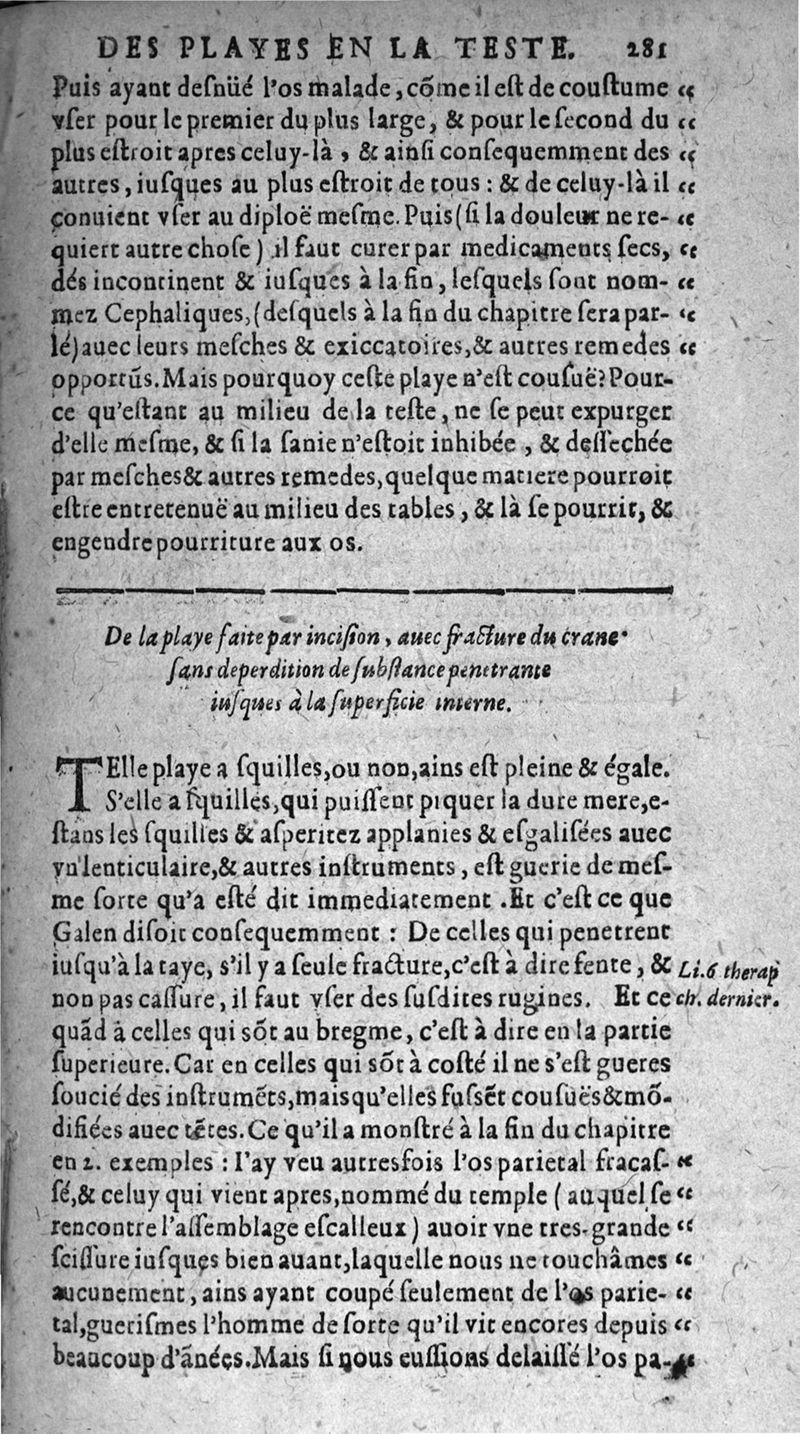 DES PLAYES EN LA TESTE. 281
Puis ayant deſnüé l'os malade, cõme il eſt de couſtume «
vſer pour le premier du plus large, & pour le ſecond du «
plus eſtroit apres celuy-là, & ainſi conſequemment des «
autres, iuſques au plus eſtroit de tous : & de celuy-là il «
conuient vſer au diploë meſme. Puis (ſi la douleur ne re- «
quiert autre choſe) il faut curer par medicaments ſecs, «
dés incontinent & iuſques à la fin, leſquels ſont nom- «
mez Cephaliques, (deſquels à la fin du chapitre ſera par- «
lé) auec leurs meſches & exiccatoires, & autres remedes «
opportũs. Mais pourquoy ceſte playe n'eſt couſuë? Pour-
ce qu'eſtant au milieu de la teſte, ne ſe peut expurger
d'elle meſme, & ſi la ſanie n'eſtoit inhibée, & deſſechée
par meſches & autres remedes, quelque matiere pourroit
eſtre entretenuë au milieu des tables, & là ſe pourrir, &
engendre pourriture aux os.
De la playe faite par inciſion, auec fracture du crane
ſans deperdition de ſubſtance penetrante
iuſques à la ſuperficie interne.
TElle playe a ſquilles, ou non, ains eſt pleine & égale.
S'elle a ſquilles, qui puiſſent piquer la dure mere, e-
ſtans les ſquilles & aſperitez applanies & eſgaliſées auec
vn lenticulaire, & autres inſtruments, eſt guerie de meſ-
me ſorte qu'a eſté dit immediatement. Et c'eſt ce que
Galen diſoit conſequemment : De celles qui penetrent
iuſqu'à la taye, s'il y a ſeule fracture, c'eſt à dire fente, & Li.6 therap
non pas caſſure, il faut vſer des ſuſdites rugines. Et ce ch. dernier.
quãd à celles qui sõt au bregme, c'eſt à dire en la partie
ſuperieure. Car en celles qui sõt à coſté il ne s'eſt gueres
ſoucié des inſtrumẽts, mais qu'elles fuſsẽt couſuës & mõ-
difiées auec tẽtes. Ce qu'il a monſtré à la fin du chapitre
en 2. exemples : I'ay veu autresfois l'os parietal fracaſ- «
ſé, & celuy qui vient apres, nommé du temple (auquel ſe «
rencontre l'aſſemblage eſcalleux) auoir vne tres-grande «
ſciſſure iuſques bien auant, laquelle nous ne touchâmes «
aucunement, ains ayant coupé ſeulement de l'os parie- «
tal, gueriſmes l'homme de ſorte qu'il vit encores depuis «
beaucoup d'ãnées. Mais ſi nous euſſions delaiſſé l'os pa- «